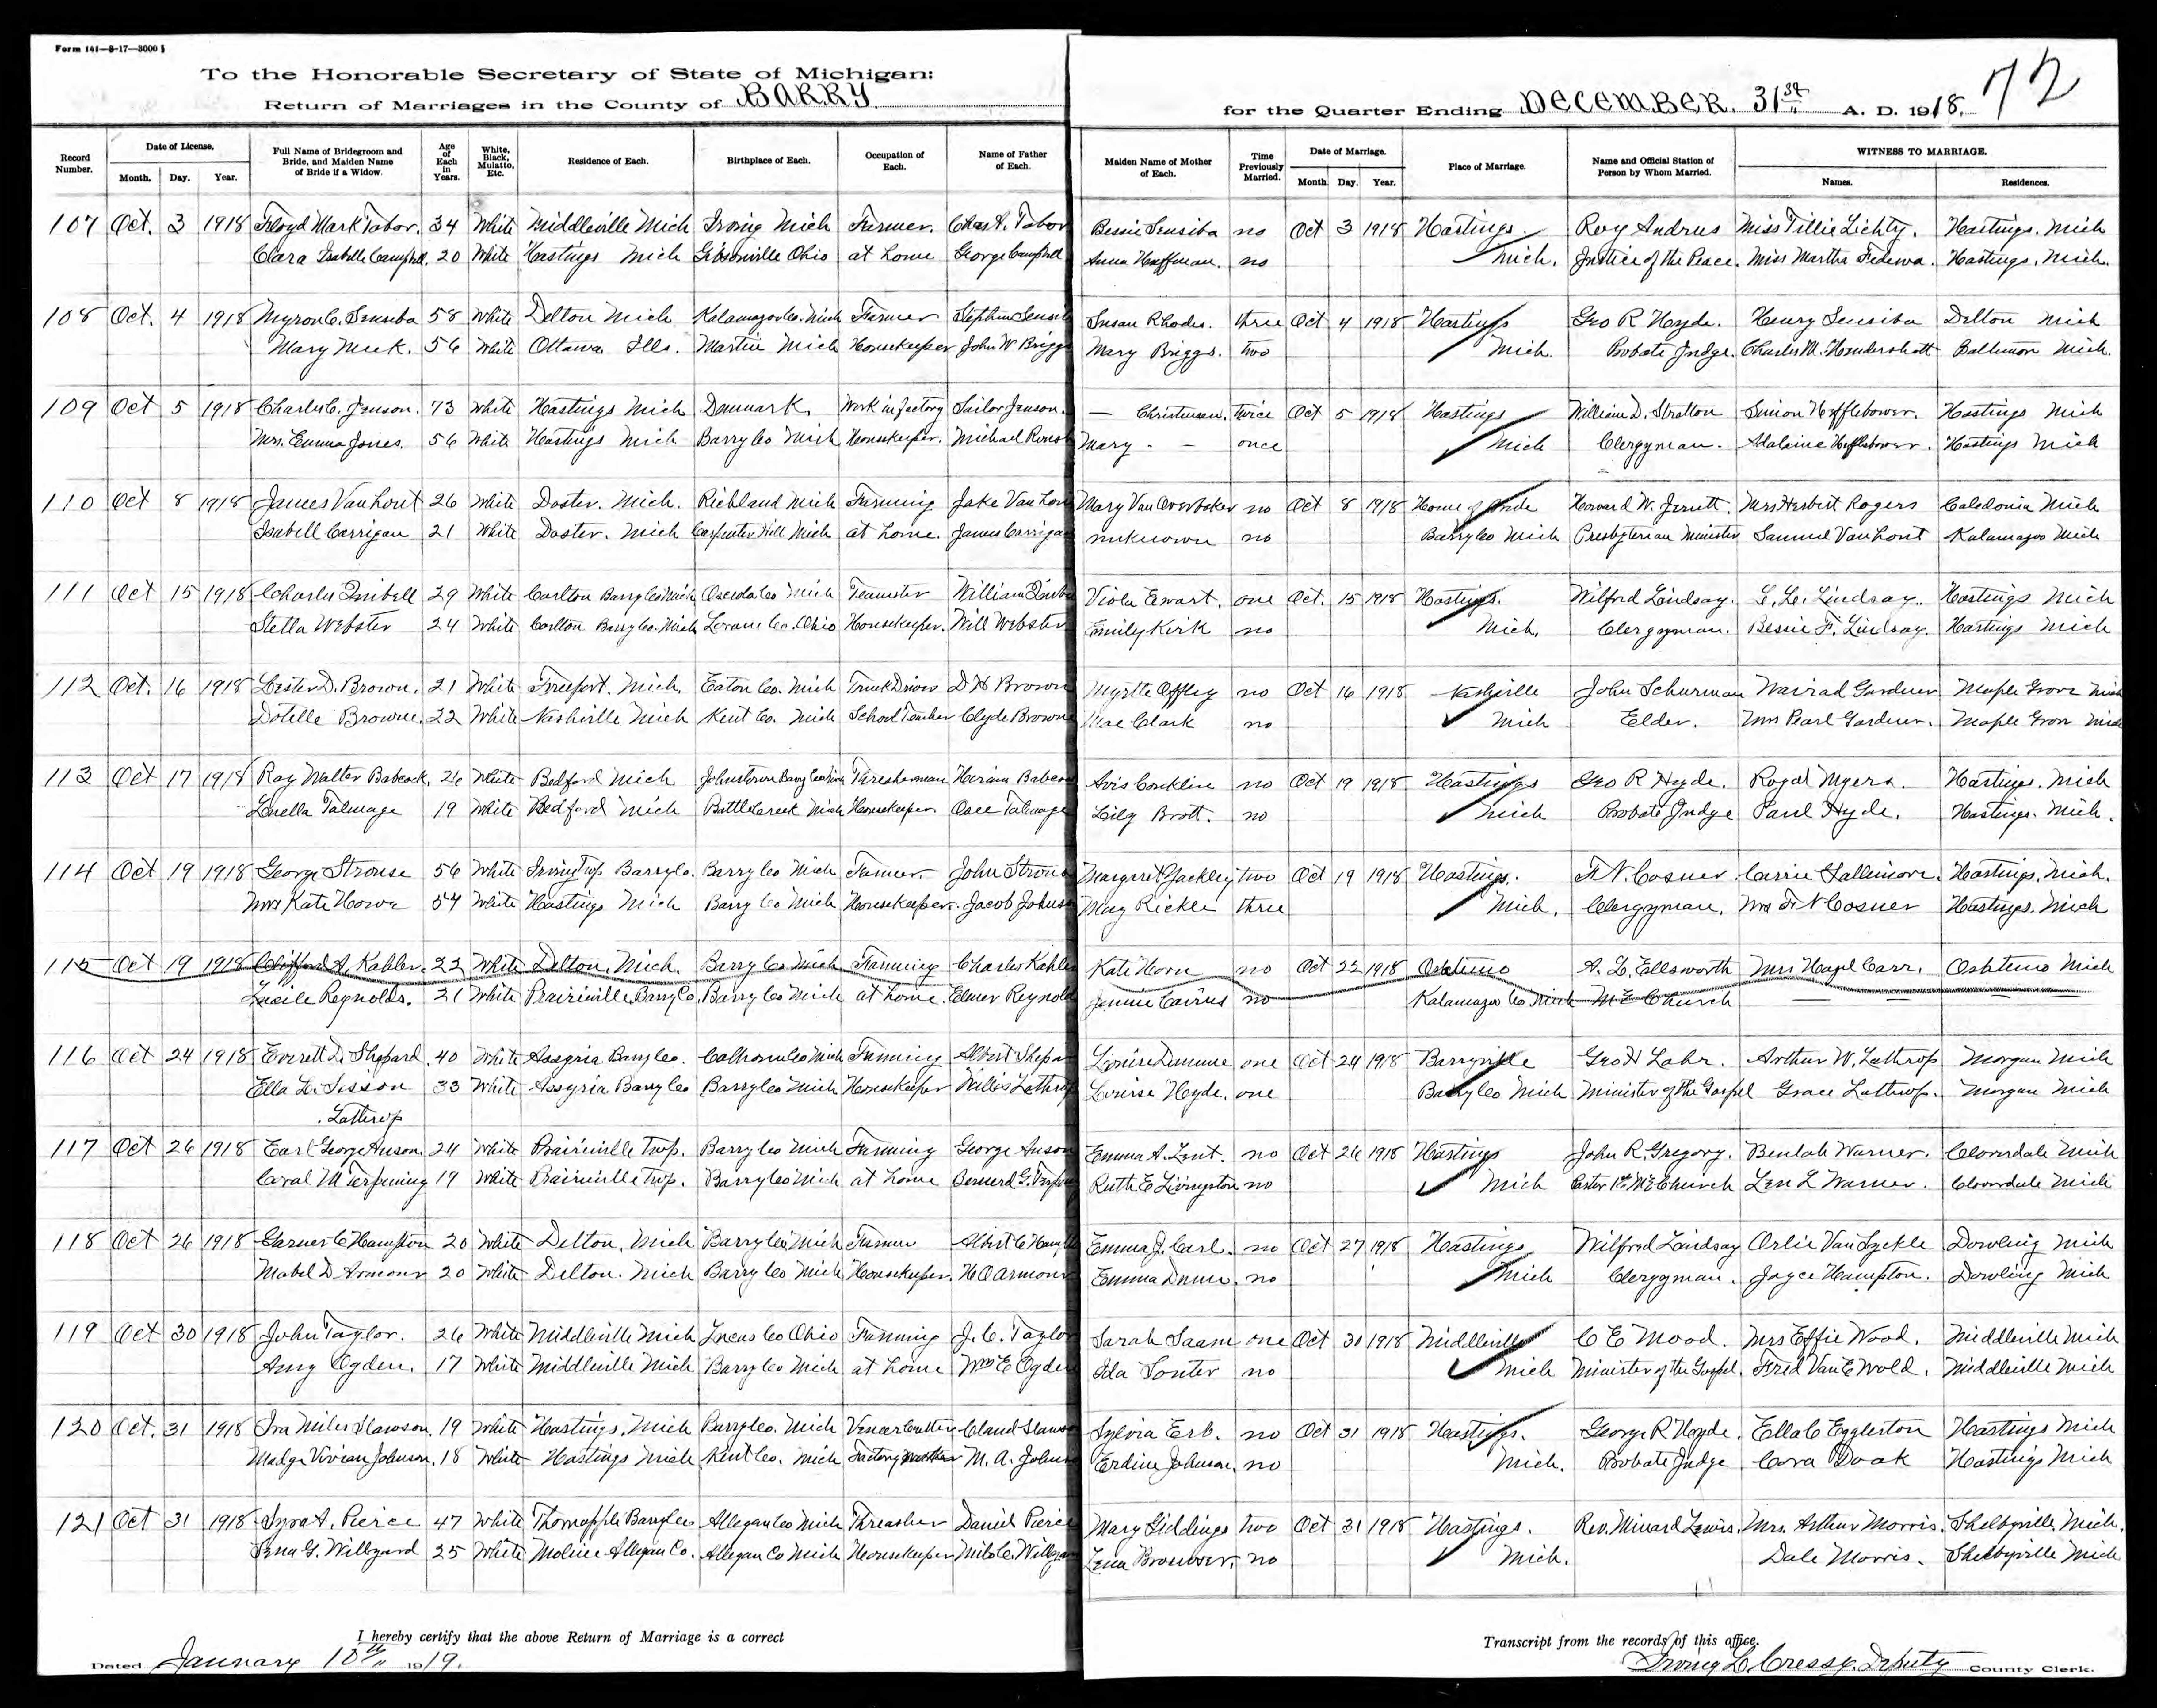 Form 141—8-17—3000 §
To the Honorable Secretary of State of Michigan:
Return of Marriages in the County of BARRY. for the Quarter Ending DECEMBER. 31st A. D. 1918. 72
Record Number. Date of License. Month. Day. Year. Full Name of Bridegroom and Bride, and Maiden Name of Bride if a Widow. Age of Each in Years. White, Black, Mulatto, Etc. Residence of Each. Birthplace of Each. Occupation of Each. Name of Father of Each. Maiden Name of Mother of Each. Time Previously Married. Date of Marriage. Month. Day. Year. Place of Marriage. Name and Official Station of Person by Whom Married. WITNESS TO MARRIAGE. Names. Residences.
107 Oct. 3 1918 Floyd Mark Tabor. 34 White Middleville Mich Irving Mich Farmer. Chas A. Tabor Bessie Sensiba no Oct 3 1918 Hastings. Roy Andrus Miss Tillie Lichty. Hastings. Mich
Clara Isabelle Campbell. 20 White Hastings Mich Gibsonville Ohio at home George Campbell Anna Huffman. no Mich. Justice of the Peace. Miss Martha Fedewa. Hastings. Mich.
108 Oct. 4 1918 Myron C. Sensiba 58 White Delton Mich Kalamazoo Co. Mich Farmer Stephen Sensib Susan Rhodes. three Oct 4 1918 Hastings Geo R Hyde. Henry Sensiba Delton Mich
Mary Meek. 56 White Ottawa Ills. Martin Mich Housekeeper John W Briggs Mary Briggs. two Mich. Probate Judge. Charles M. Hendershott Baltimore Mich.
109 Oct 5 1918 Charles C. Jenson. 73 White Hastings Mich Denmark. Work in factory Sailor Jenson. — Christensen. twice Oct 5 1918 Hastings William D. Stratton Simon Hefflebower. Hastings Mich
Mrs. Emma Jones. 56 White Hastings Mich Barry Co Mich Housekeeper. Michael Mary - - once Mich Clergyman. Adalaine Hefflebower. Hastings Mich
110 Oct 8 1918 James VanHout 26 White Doster. Mich. Richland Mich Farming Jake Van Hou Mary Van Overbeker no Oct 8 1918 Home of bride Howard W. Jerrett. Mrs Herbert Rogers Caledonia Mich
Isabell Corrigan 21 White Doster. Mich Carpenter Hill Mich at home. James Corrigan unknown no Barry Co Mich Presbyterian Minister Samuel VanHout Kalamazoo Mich
111 Oct 15 1918 Charles Trubell 29 White Carlton Barry Co Mich Osceola Co Mich Teamster William Viola Ewart. one Oct. 15 1918 Hastings. Wilford Lindsay. G. L. Lindsay. Hastings Mich
Stella Webster 24 White Carlton Barry Co. Mich Lorain Co. Ohio Housekeeper. Will Webster Emily Kirk no Mich. Clergyman. Bessie F. Lindsay. Hastings Mich
112 Oct. 16 1918 Lester D. Brown. 21 White Freeport. Mich. Eaton Co. Mich Truck Driver D H Brown Myrtle Offley no Oct 16 1918 Nashville John Schurman Gardner Maple Grove Mich
Dotelle Browne. 22 White Nashville Mich Kent Co. Mich School Teacher Clyde Browne Mae Clark no Mich Elder. Mrs Pearl Gardner. Maple Grove Mich
113 Oct 17 1918 Ray Walter Babcock. 26 White Bedford Mich Johnstown Barry Co Mich Thresherman Hiram Babco Avis Conklin no Oct 19 1918 Hastings Geo R Hyde. Royal Myers. Hastings. Mich
Luella Talmage 19 White Bedford Mich Battle Creek Mich Housekeeper. Talmage Lily Brott. no Mich Probate Judge Paul Hyde. Hastings. Mich.
114 Oct 19 1918 George Strouse 56 White Irving Twp. Barry Co. Barry Co Mich Farmer John Strous Margaret Yackley two Oct 19 1918 Hastings. F. N. Cosner Carrie Gallimore. Hastings. Mich.
Mrs Kate Howe 54 White Hastings Mich Barry Co Mich Housekeeper. Jacob Johns May Rickle three Mich. Clergyman. Mrs F. N Cosner Hastings. Mich
115 Oct 19 1918 Clifford A. Kahler. 22 White Delton. Mich. Barry Co Mich Farming Charles Kahle Kate Horn no Oct 22 1918 Oshtemo A. L. Ellsworth Mrs Hazel Carr. Oshtemo Mich
Lucile Reynolds. 21 White Prairieville Barry Co Barry Co Mich at home. Elmer Reynold Jennie Cairns no Kalamazoo Co Mich M E Church — — —
116 Oct 24 1918 Everett D. Shepard. 40 White Assyria Barry Co. Calhoun Co Mich Farming Albert Shepa Louise one Oct 24 1918 Barryville Geo H Lahr. Arthur W. Lathrop Morgan Mich
Ella L. Sisson 33 White Assyria Barry Co Barry Co Mich Housekeeper Willis Lathrop Louise Hyde. one Barry Co Mich Minister of the Gospel Grace Lathrop. Morgan Mich
. Lathrop
117 Oct 26 1918 Earl George Anson. 24 White Prairieville Twp. Barry Co Mich Farming George Anson Emma A. Lent. no Oct 26 1918 Hastings John R. Gregory. Beulah Warner. Cloverdale Mich
Coral M Terpening 19 White Prairieville Twp. Barry Co Mich at home Bernerd G. Ruth E Livingston no Mich Paster 1st M E Church Len L Warner. Cloverdale Mich
118 Oct 26 1918 Garner C Hampton 20 White Delton. Mich Barry Co Mich Farmer Albert C Hamp Emma J. Carl. no Oct 27 1918 Hastings Wilford Lindsay Orlie VanSyckle Dowling Mich
Mabel D Armour 20 White Delton. Mich Barry Co Mich Housekeeper. H O Armour Emma no Mich Clergyman. Joyce Hampton. Dowling Mich
119 Oct 30 1918 John Taylor. 26 White Middleville Mich Lucas Co Ohio Farming J. C. Taylor Sarah Saam one Oct 30 1918 Middleville C E Mood. Mrs Effie Wood. Middleville Mich
Amy Ogden. 17 White Middleville Mich Barry Co Mich at home Wm E Ogden Ida Souter no Mich Minister of the Gospel. Fred Van E Wold. Middleville Mich
120 Oct. 31 1918 Ira Miles Slawson. 19 White Hastings. Mich Barry Co. Mich Veneer Cutter Claud Slawso Sylvia Erb. no Oct 31 1918 Hastings. George R Hyde. Ella C Eggleston Hastings Mich
Madge Vivian Johnson. 18 White Hastings Mich Kent Co. Mich Factory worker M. A. Johns Erdine Johnson. no Mich. Probate Judge Cora Doak Hastings Mich
121 Oct 31 1918 A. Pierce 47 White Thornapple Barry Co Allegan Co Mich Threasher Daniel Pierce Mary Giddings two Oct 31 1918 Hastings. Rev. Minard Lewis. Mrs. Arthur Morris. Shelbyville. Mich.
G. Willyard 25 White Moline Allegan Co. Allegan Co Mich Housekeeper Milo C. Willyar Lena Brouwer. no Mich. Dale Morris. Shelbyville Mich
I hereby certify that the above Return of Marriage is a correct Transcript from the records of this office.
Dated January 10th 1919. Irving L. Cressy. Deputy County Clerk.